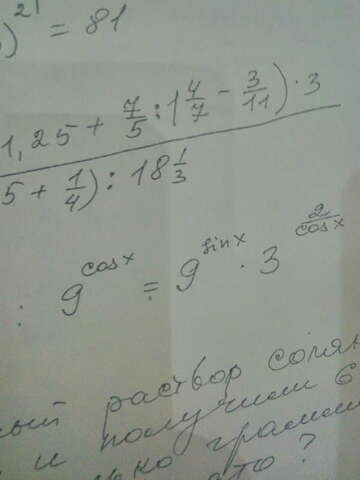 )²¹ = 81
1,25 + 7/5 : 1 4/7 - 3/11) · 3
5 + 1/4) : 18 1/3
: 9^cosx = 9^sinx · 3^(2/cosx)
раствор соля
и получили 6
грамм
?